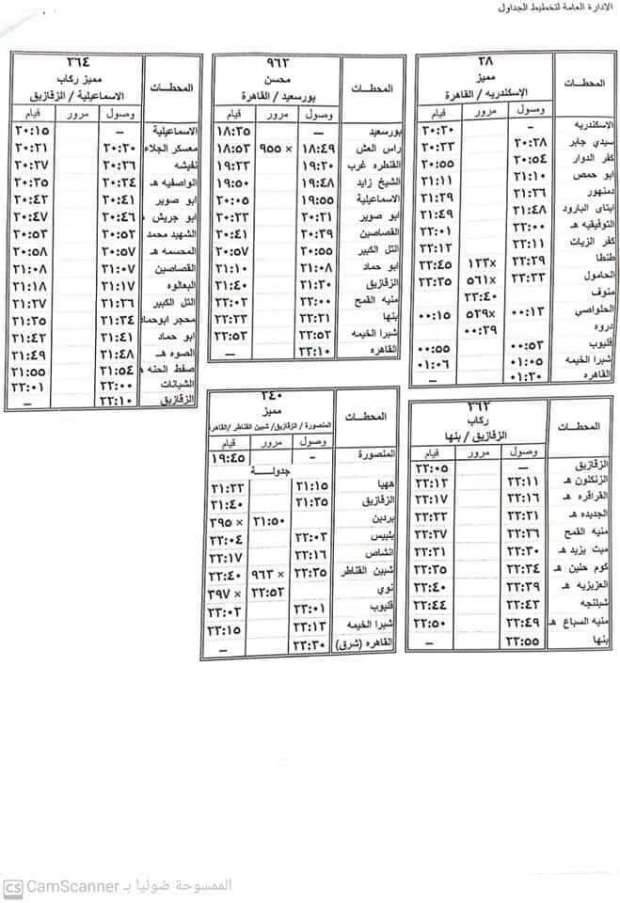 الادارة العامة لتخطيط الجداول
المحطــات ٣٨
مميز
الإسكندريه / القاهرة
وصول مرور قيام
الاسكندريه – ٢٠:٢٠
سيدي جابر ٢٠:٢٨ ٢٠:٣٣
كفر الدوار ٢٠:٥٤ ٢٠:٥٥
ابو حمص ٢١:١٠ ٢١:١١
دمنهور ٢١:٢٦ ٢١:٢٩
ايتاى البارود ٢١:٤٨ ٢١:٤٩
التوفيقيه هـ ٢٢:٠٠ ٢٢:٠١
كفر الزيات ٢٢:١١ ٢٢:١٢
طنطا ٢٢:٢٩ ×١٢٣ ٢٢:٤٥
الحامول ٢٣:٢٣ ×٥٦١ ٢٣:٣٥
منوف ٢٣:٤٠
الحلواصي ٠٠:١٣ ×٥٢٩ ٠٠:١٥
دروه ٠٠:٢٩
قليوب ٠٠:٥٣ ٠٠:٥٥
شبرا الخيمه ٠١:٠٥ ٠١:٠٦
القاهره ٠١:٢٠ –
المحطــات ٩٦٣
محسن
بورسعيد / القاهرة
وصول مرور قيام
بورسعيد – ١٨:٢٥
راس العش ١٨:٤٩ × ٩٥٥ ١٨:٥٣
القنطره غرب ١٩:٢٠ ١٩:٢٣
الشيخ زايد ١٩:٤٨ ١٩:٥٠
الاسماعيلية ١٩:٥٥ ٢٠:٠٥
ابو صوير ٢٠:٢١ ٢٠:٢٣
القصاصين ٢٠:٣٩ ٢٠:٤١
التل الكبير ٢٠:٥٥ ٢٠:٥٧
ابو حماد ٢١:٠٨ ٢١:١٠
الزقازيق ٢١:٣٠ ٢١:٤٠
منيه القمح ٢٢:٠٠ ٢٢:٠٢
بنها ٢٢:٢١ ٢٢:٢٣
شبرا الخيمه ٢٢:٥٢ ٢٢:٥٣
القاهره ٢٣:١٠ –
المحطــات ٣٦٤
مميز ركاب
الاسماعيلية / الزقازيق
وصول مرور قيام
الاسماعيلية – ٢٠:١٥
معسكر الجلاء ٢٠:٢٠ ٢٠:٢١
نفيشه ٢٠:٢٦ ٢٠:٢٧
الواصفيه هـ ٢٠:٣٤ ٢٠:٣٥
ابو صوير ٢٠:٤١ ٢٠:٤٢
ابو جريش ٢٠:٤٦ ٢٠:٤٧
الشهيد محمد ٢٠:٥٢ ٢٠:٥٣
المحسمه هـ ٢٠:٥٧ ٢٠:٥٨
القصاصين ٢١:٠٧ ٢١:٠٨
البعالوه ٢١:١٧ ٢١:١٨
التل الكبير ٢١:٢٦ ٢١:٢٧
محجر ابوحماد ٢١:٣٤ ٢١:٣٥
ابو حماد ٢١:٤١ ٢١:٤٢
الصوه هـ ٢١:٤٨ ٢١:٤٩
صفط الحنه ٢١:٥٤ ٢١:٥٥
الشبانات ٢٢:٠٠ ٢٢:٠١
الزقازيق ٢٢:١٠ –
المحطــات ٣٦٢
ركاب
الزقازيق / بنها
وصول مرور قيام
الزقازيق – ٢٢:٠٥
الزنكلون هـ ٢٢:١١ ٢٢:١٢
القراقره هـ ٢٢:١٦ ٢٢:١٧
الجديده هـ ٢٢:٢١ ٢٢:٢٢
منيه القمح ٢٢:٢٦ ٢٢:٢٧
ميت يزيد هـ ٢٢:٣٠ ٢٢:٣١
كوم حلين هـ ٢٢:٣٤ ٢٢:٣٥
العزيزيه هـ ٢٢:٣٩ ٢٢:٤٠
شبلنجه ٢٢:٤٣ ٢٢:٤٤
منيه السباع هـ ٢٢:٤٩ ٢٢:٥٠
بنها ٢٢:٥٥ –
المحطــات ٣٤٠
مميز
المنصورة / الزقازيق/ شبين القناطر /القاهرة
وصول مرور قيام
المنصورة – ١٩:٤٥
جدولــــة
ههيا ٢١:١٥ ٢١:٢٢
الزقازيق ٢١:٣٥ ٢١:٤٠
بردين ٢١:٥٠ × ٣٩٥
بلبيس ٢٢:٠٣ ٢٢:٠٤
انشاص ٢٢:١٦ ٢٢:١٧
شبين القناطر ٢٢:٣٥ × ٩٦٣ ٢٢:٤٠
نوي ٢٢:٥٢ × ٣٩٧
قليوب ٢٣:٠١ ٢٣:٠٣
شبرا الخيمه ٢٣:١٣ ٢٣:١٥
القاهره (شرق) ٢٣:٣٠ –
CS CamScanner الممسوحة ضوئيا بـ